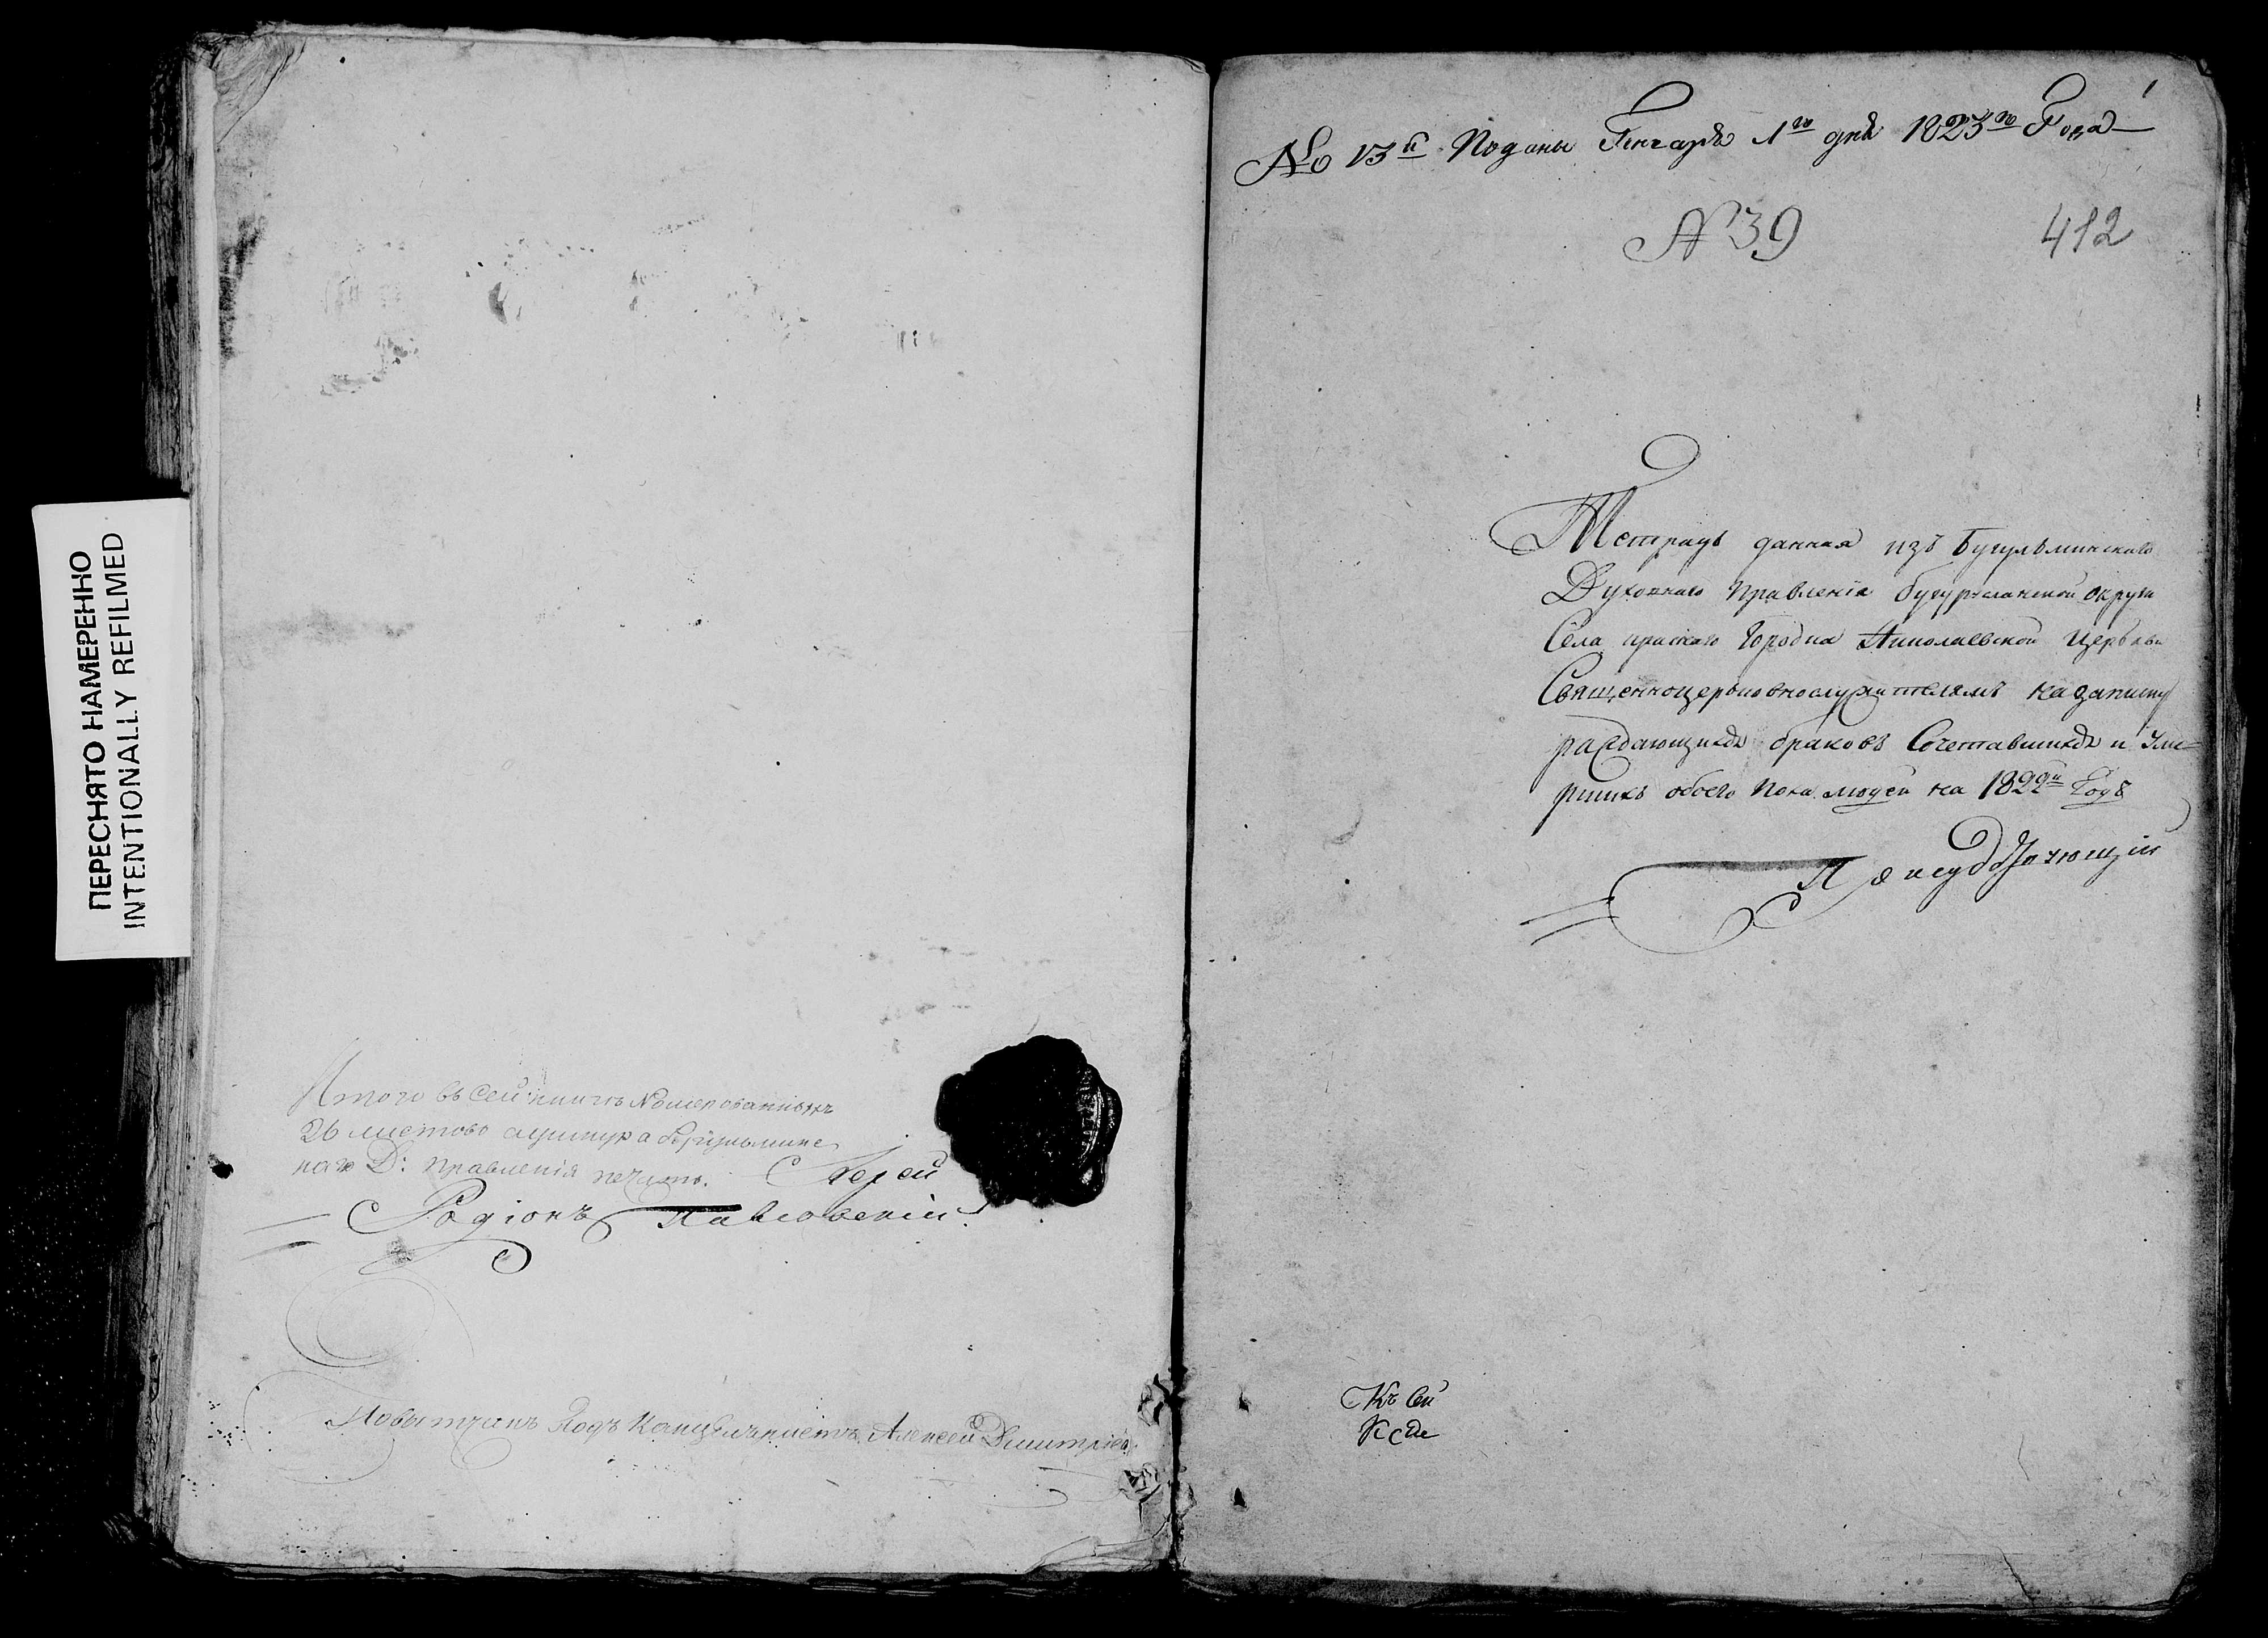 ПЕРЕСНЯТО НАМЕРЕННО
INTENTIONALLY REFILMED
Итого въ сей книгѣ Номерованныхъ
26 листовъ аунтура Бугульминс
каго Д: правленія печать. Іерей
Родіонъ Павловскій.
Повытчикъ Подъ Канцеляристъ Алексей Дмитріевъ
1
№ 13й Поданы Генваря 1го дня 1823го Года
№ 39
412
Тетрадь данная изъ Бугульминскаго
Духовнаго Правленія бугурусланской округи
Села краснаго Городка Николаевской Церькви
Священноцерьковнослужителямъ на записку
раждающихся браковъ Сочетавшихся и Уме-
ршихъ обоего Пола людей на 1822й Годъ
Къ Сей